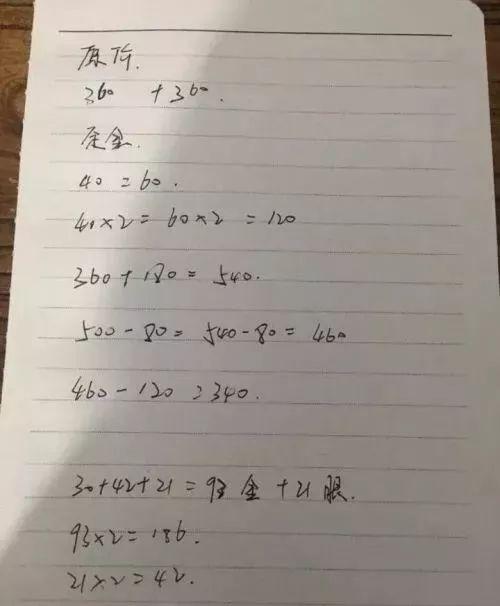 原价.
360 + 360.
定金.
40 = 60.
40×2 = 60×2 = 120
360 + 180 = 540.
500 - 80 = 540 - 80 = 460
460 - 120 = 340.
30+42+21 = 93 金 + 21 眼.
93×2 = 186.
21×2 = 42.